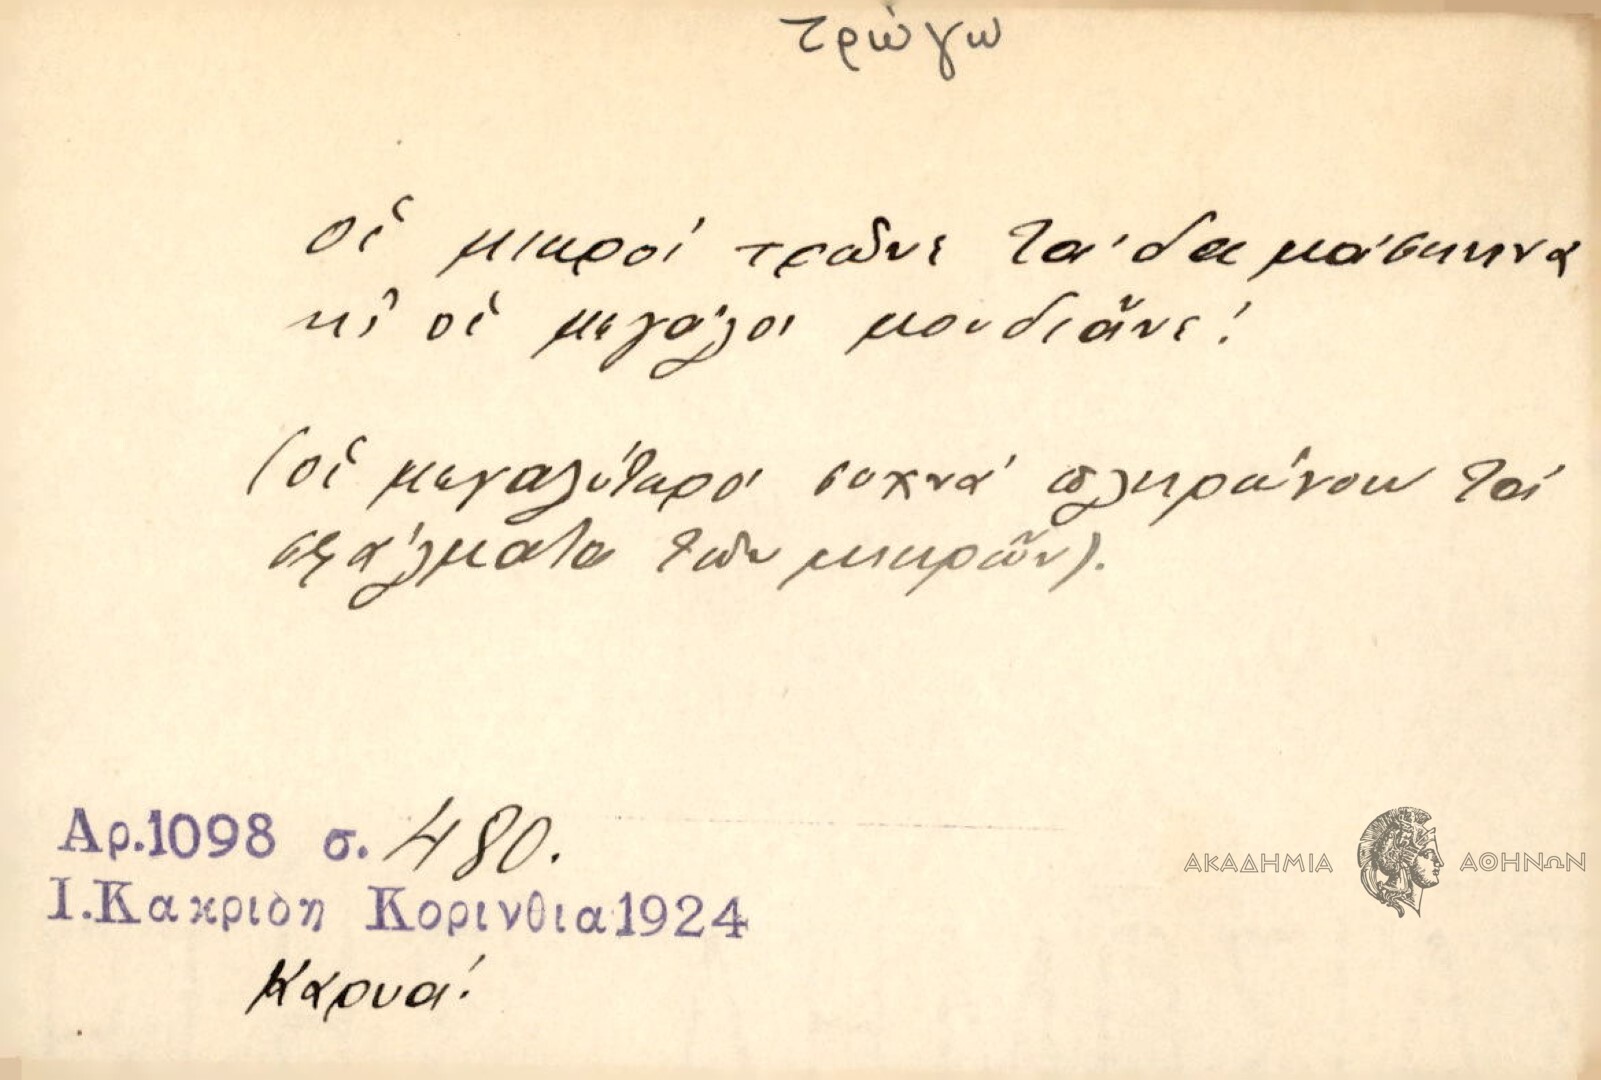 τρώγω
οἱ μικροί τρῶνε τά δαμάσκηνα
κι οἱ μεγάλοι μουδιᾶνε!
(οἱ μεγαλύτεροι συχνά πληρώνουν τά
σφάλματα των μικρῶν).
Αρ.1098 σ. 480.
Ι.Κακριδη Κορινθια1924
Καρυά!
ΑΚΑΔΗΜΙΑ ΑΘΗΝΩΝ